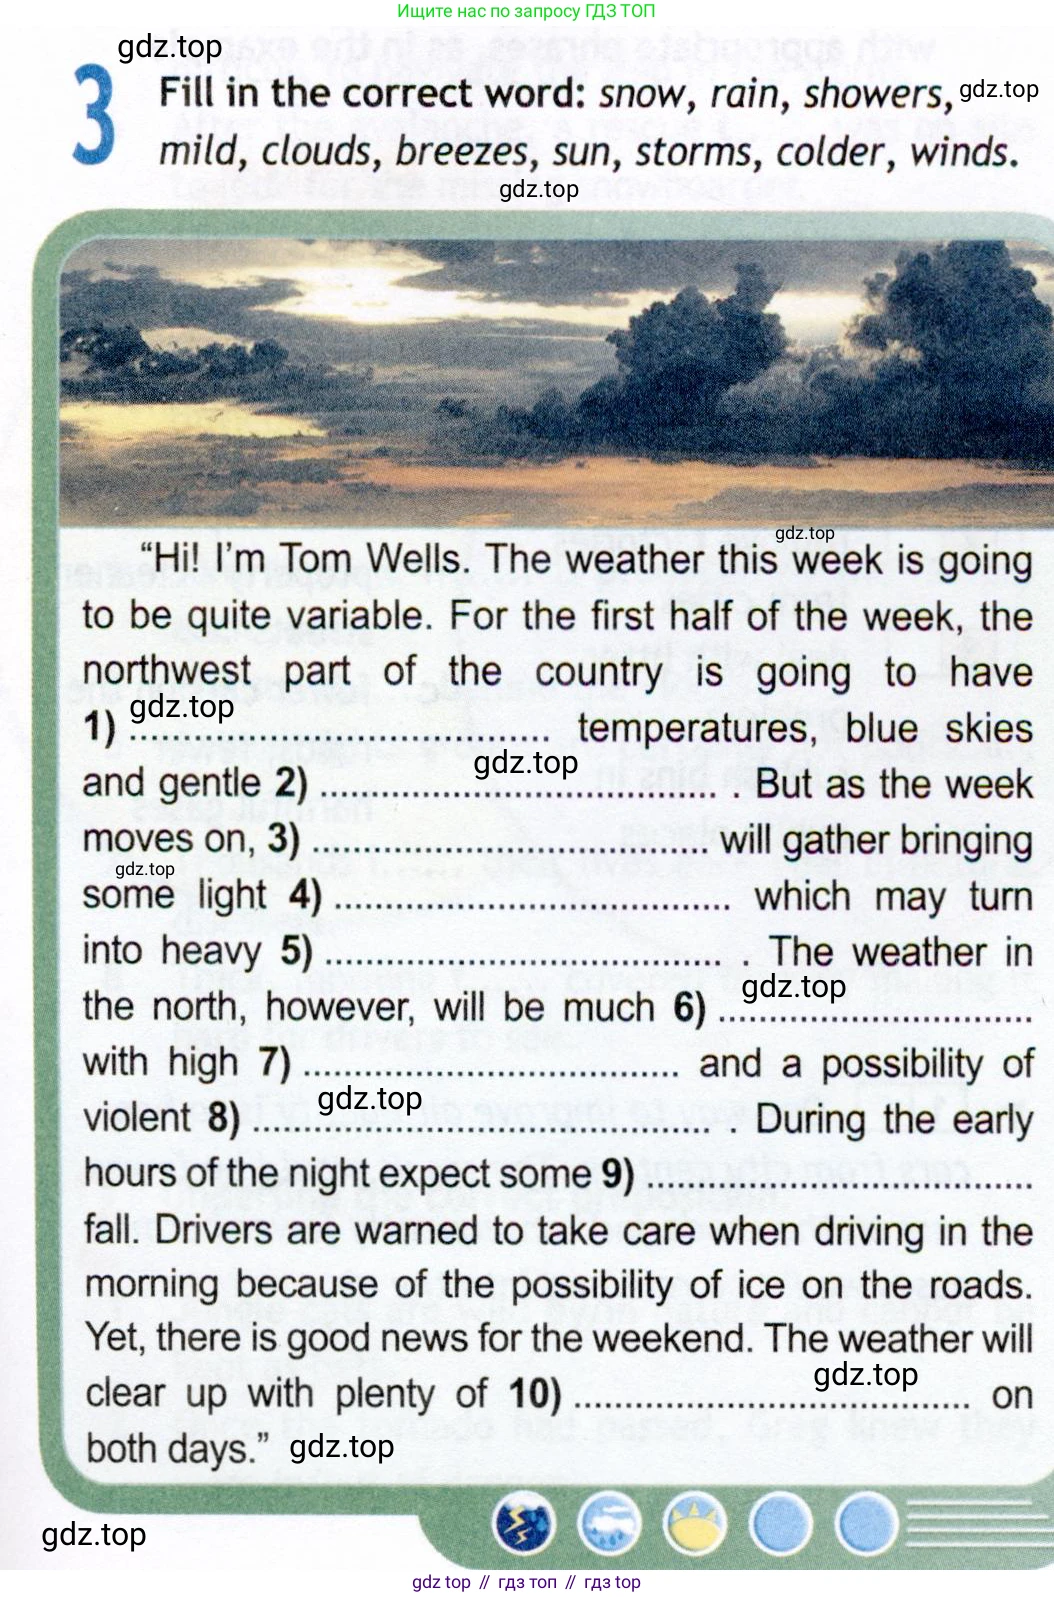 Ищите нас по запросу ГДЗ ТОП
gdz.top
3 Fill in the correct word: snow, rain, showers, gdz.top
mild, clouds, breezes, sun, storms, colder, winds.
gdz.top
gdz.top
“Hi! I’m Tom Wells. The weather this week is going
to be quite variable. For the first half of the week, the
northwest part of the country is going to have
gdz.top
1) ........................................ temperatures, blue skies
gdz.top
and gentle 2) ........................................ . But as the week
moves on, 3) ........................................ will gather bringing
gdz.top
some light 4) ........................................ which may turn
into heavy 5) ........................................ . The weather in
gdz.top
the north, however, will be much 6) ................................
with high 7) ...................................... and a possibility of
gdz.top
violent 8) .............................................. . During the early
hours of the night expect some 9) ......................................
fall. Drivers are warned to take care when driving in the
morning because of the possibility of ice on the roads.
Yet, there is good news for the weekend. The weather will
gdz.top
clear up with plenty of 10) ........................................ on
both days.” gdz.top
gdz.top
gdz top // гдз топ // gdz top